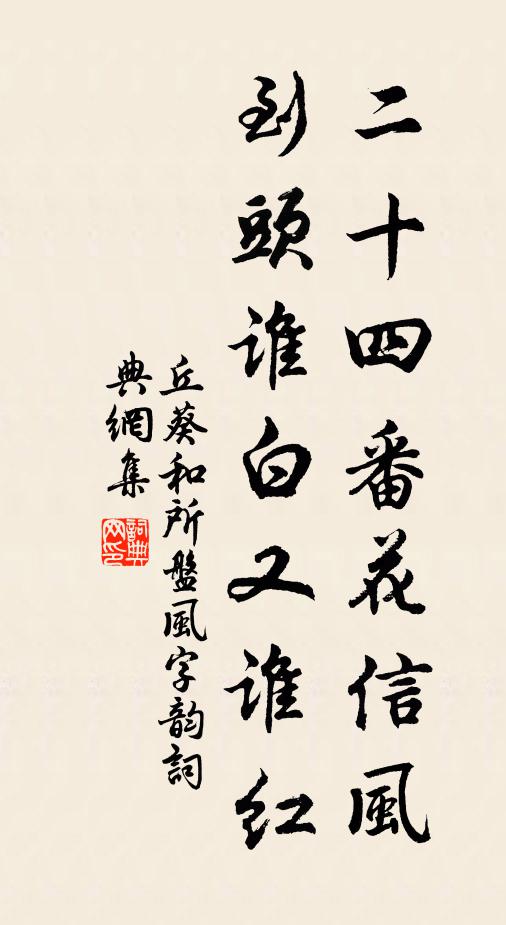 二十四番花信風
到頭誰白又誰紅
丘葵和所盤風字韵詞
典網集
詞典網印